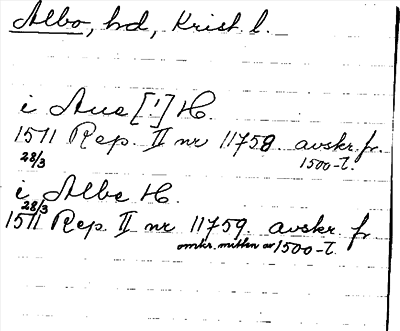 Albo, hd, Krist. l.
i Aue [!] H.
1511 Rep. II nr 11758 avskr. fr.
28/3 1500-t.
i Albe H.
28/3
1511 Rep. II nr 11759. avskr. fr
omkr. mitten av 1500-t.